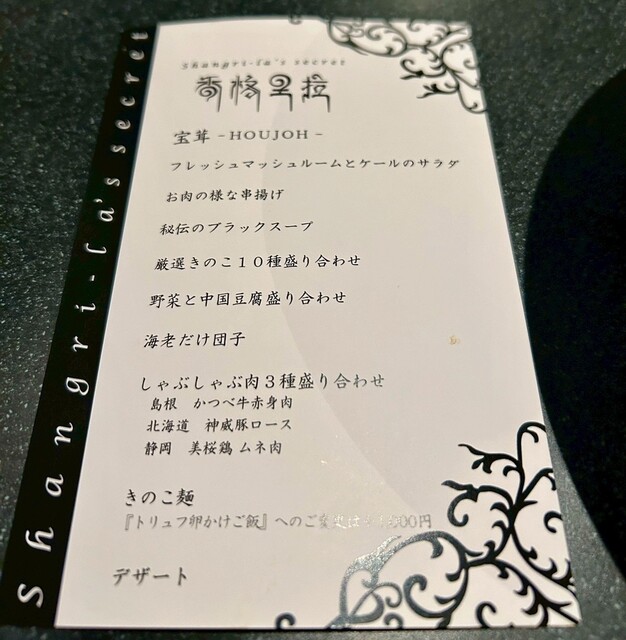 shangri-la's secret
shangri-la's secret
香格里拉
宝茸 -HOUJOH-
フレッシュマッシュルームとケールのサラダ
お肉の様な串揚げ
秘伝のブラックスープ
厳選きのこ10種盛り合わせ
野菜と中国豆腐盛り合わせ
海老だけ団子
しゃぶしゃぶ肉3種盛り合わせ
島根 かつべ牛赤身肉
北海道 神威豚ロース
静岡 美桜鶏 ムネ肉
きのこ麺
『トリュフ卵かけご飯』へのご変更は
デザート